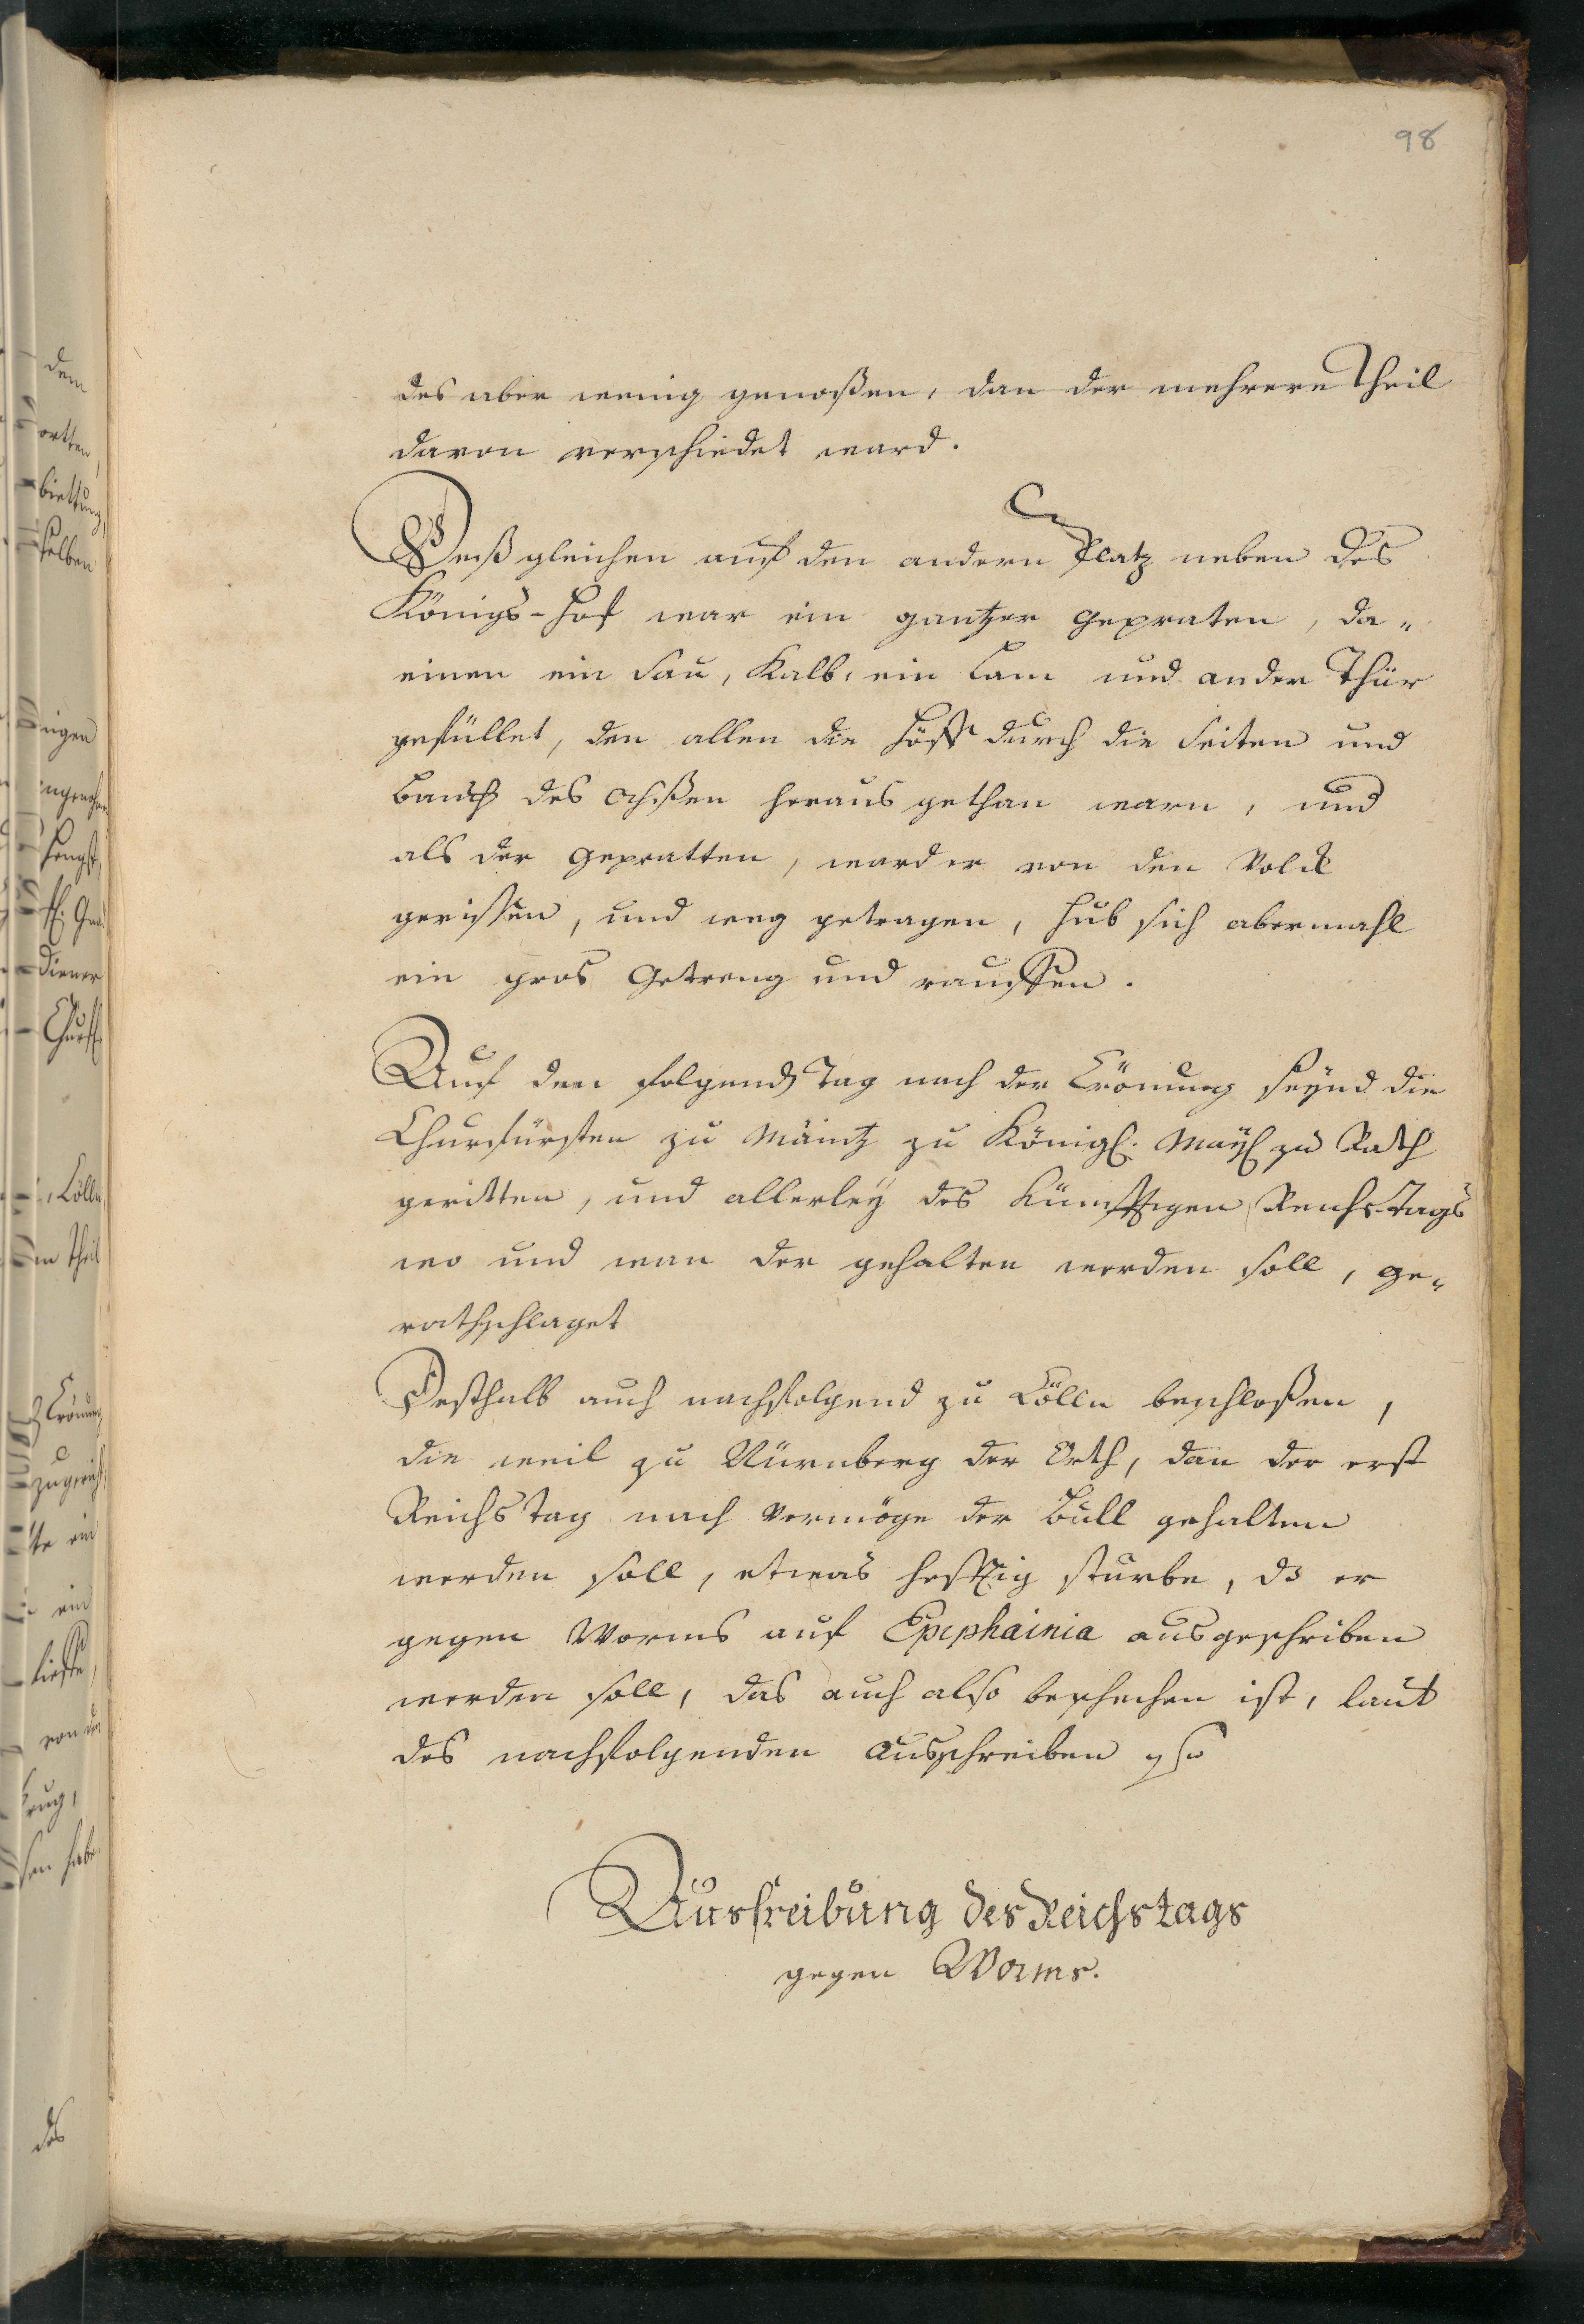 98
des aber wenig genoßen, dan der mehrere Theil
davon verschiedet ward.
Deßgleichen auf den andern Platz neben des
Königs-Hof war ein gantzer gepraten, da„
einen ein Sau, Kalb, ein Lam und ander Thür
gefüllet, den allen die Höff durch die Seiten und
Bauch des Ochßen heraus gethan warn, und
als der gepratten, ward er von den Volck
gerissen, und weg getragen, hub sich abermahl
ein gros Getreng und rauffen.
Auf den folgend Tag nach der Crönung seynd die
Churfürsten zu Mäintz zu Königl. May. zu Rath
geritten, und allerley des künfftigen Reichs-Tags
wo und wan der gehalten werden soll, ge„
rathschlaget
Desthalb auch nachfolgend zu Cölln beschloßen,
die weil zu Nürnberg der Orth, dan der erst
Reichs Tag nach Vermöge der Bull gehalten
werden soll, etwas hefftig sturbe, ds er
gegen Worms auf Epephainia ausgeschriben
werden soll, das auch also beschehen ist, laut
des nachfolgenden Ausschreiben
Ausschreibung des Reichstags
gegen Worms.
dem
ortten,
selben
Diener
Cölln
Theil
Crönung
ein
ein
von
des